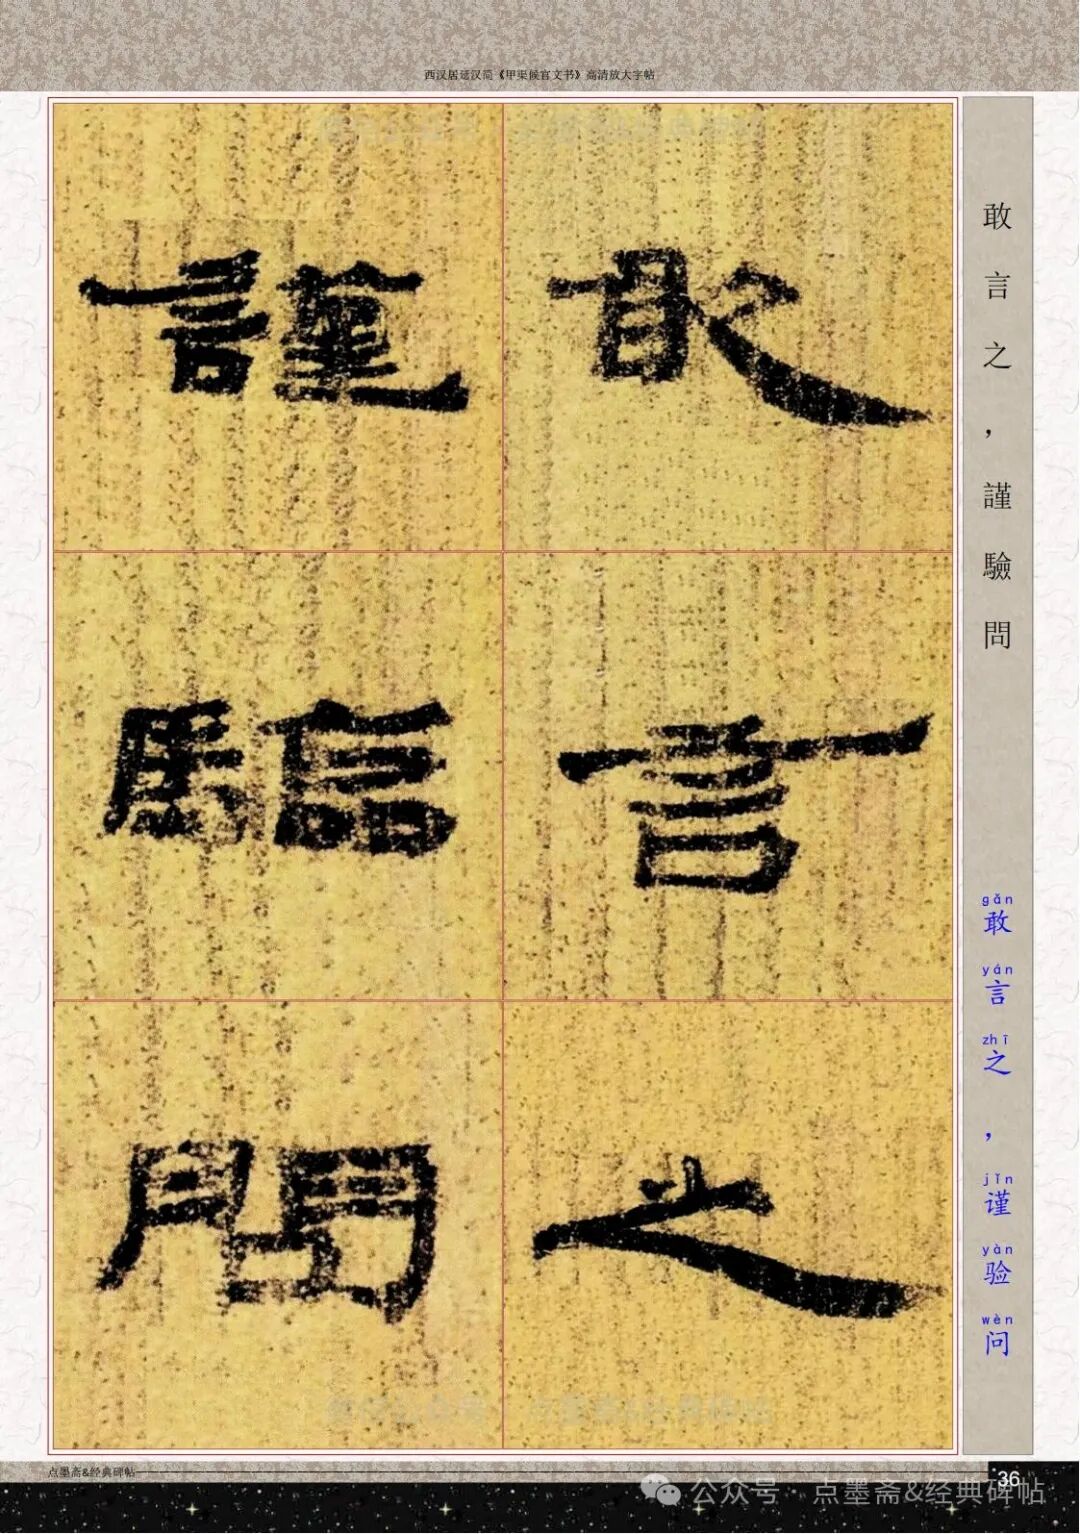 西汉居延汉简《甲渠候官文书》高清放大字帖
敢
言
之
謹
驗
問
敢言之，謹驗問
gǎn yán zhī jǐn yàn wèn
敢言之，谨验问
点墨斋&经典碑帖
36
公众号·点墨斋&经典碑帖